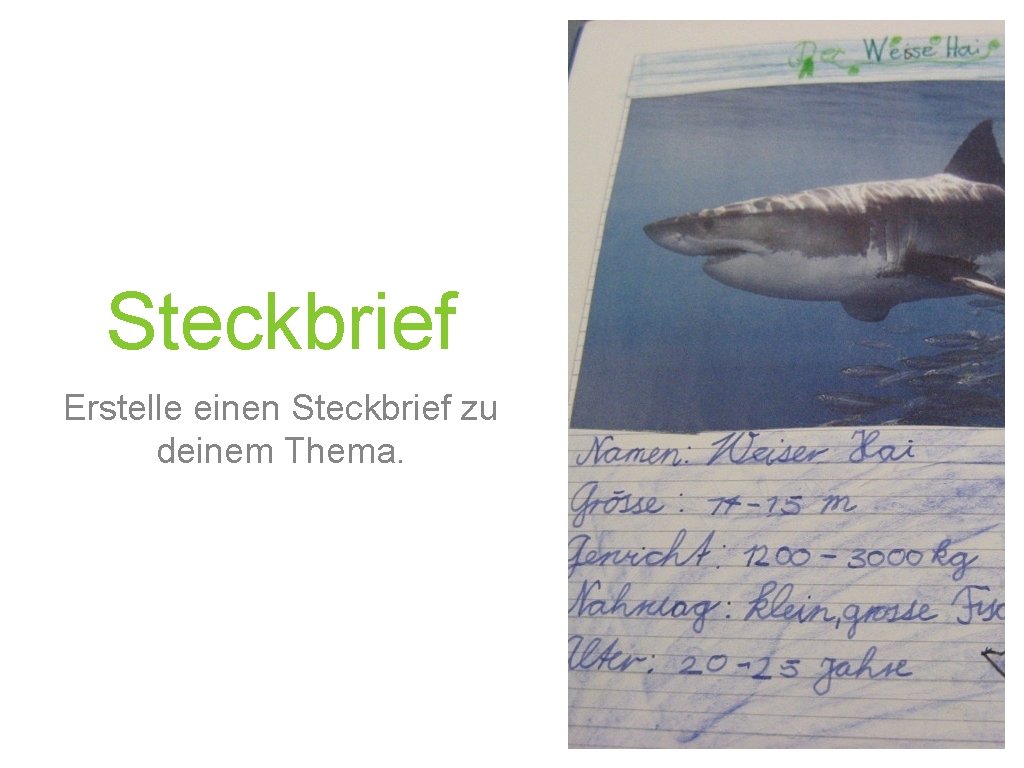 Steckbrief
Erstelle einen Steckbrief zu
deinem Thema.
Der Weisse Hai
Namen: Weiser Hai
Grösse: 14-15 m
Gewicht: 1200 - 3000 kg
Nahrung: klein, grosse
Alter: 20-25 Jahre